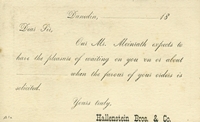 Dunedin, 18
Dear Sir,
Our Mr. Meinrath expects to
have the pleasure of waiting on you on or about
when the favour of your orders is
solicited.
Yours truly,
Hallenstein Bros. & Co.